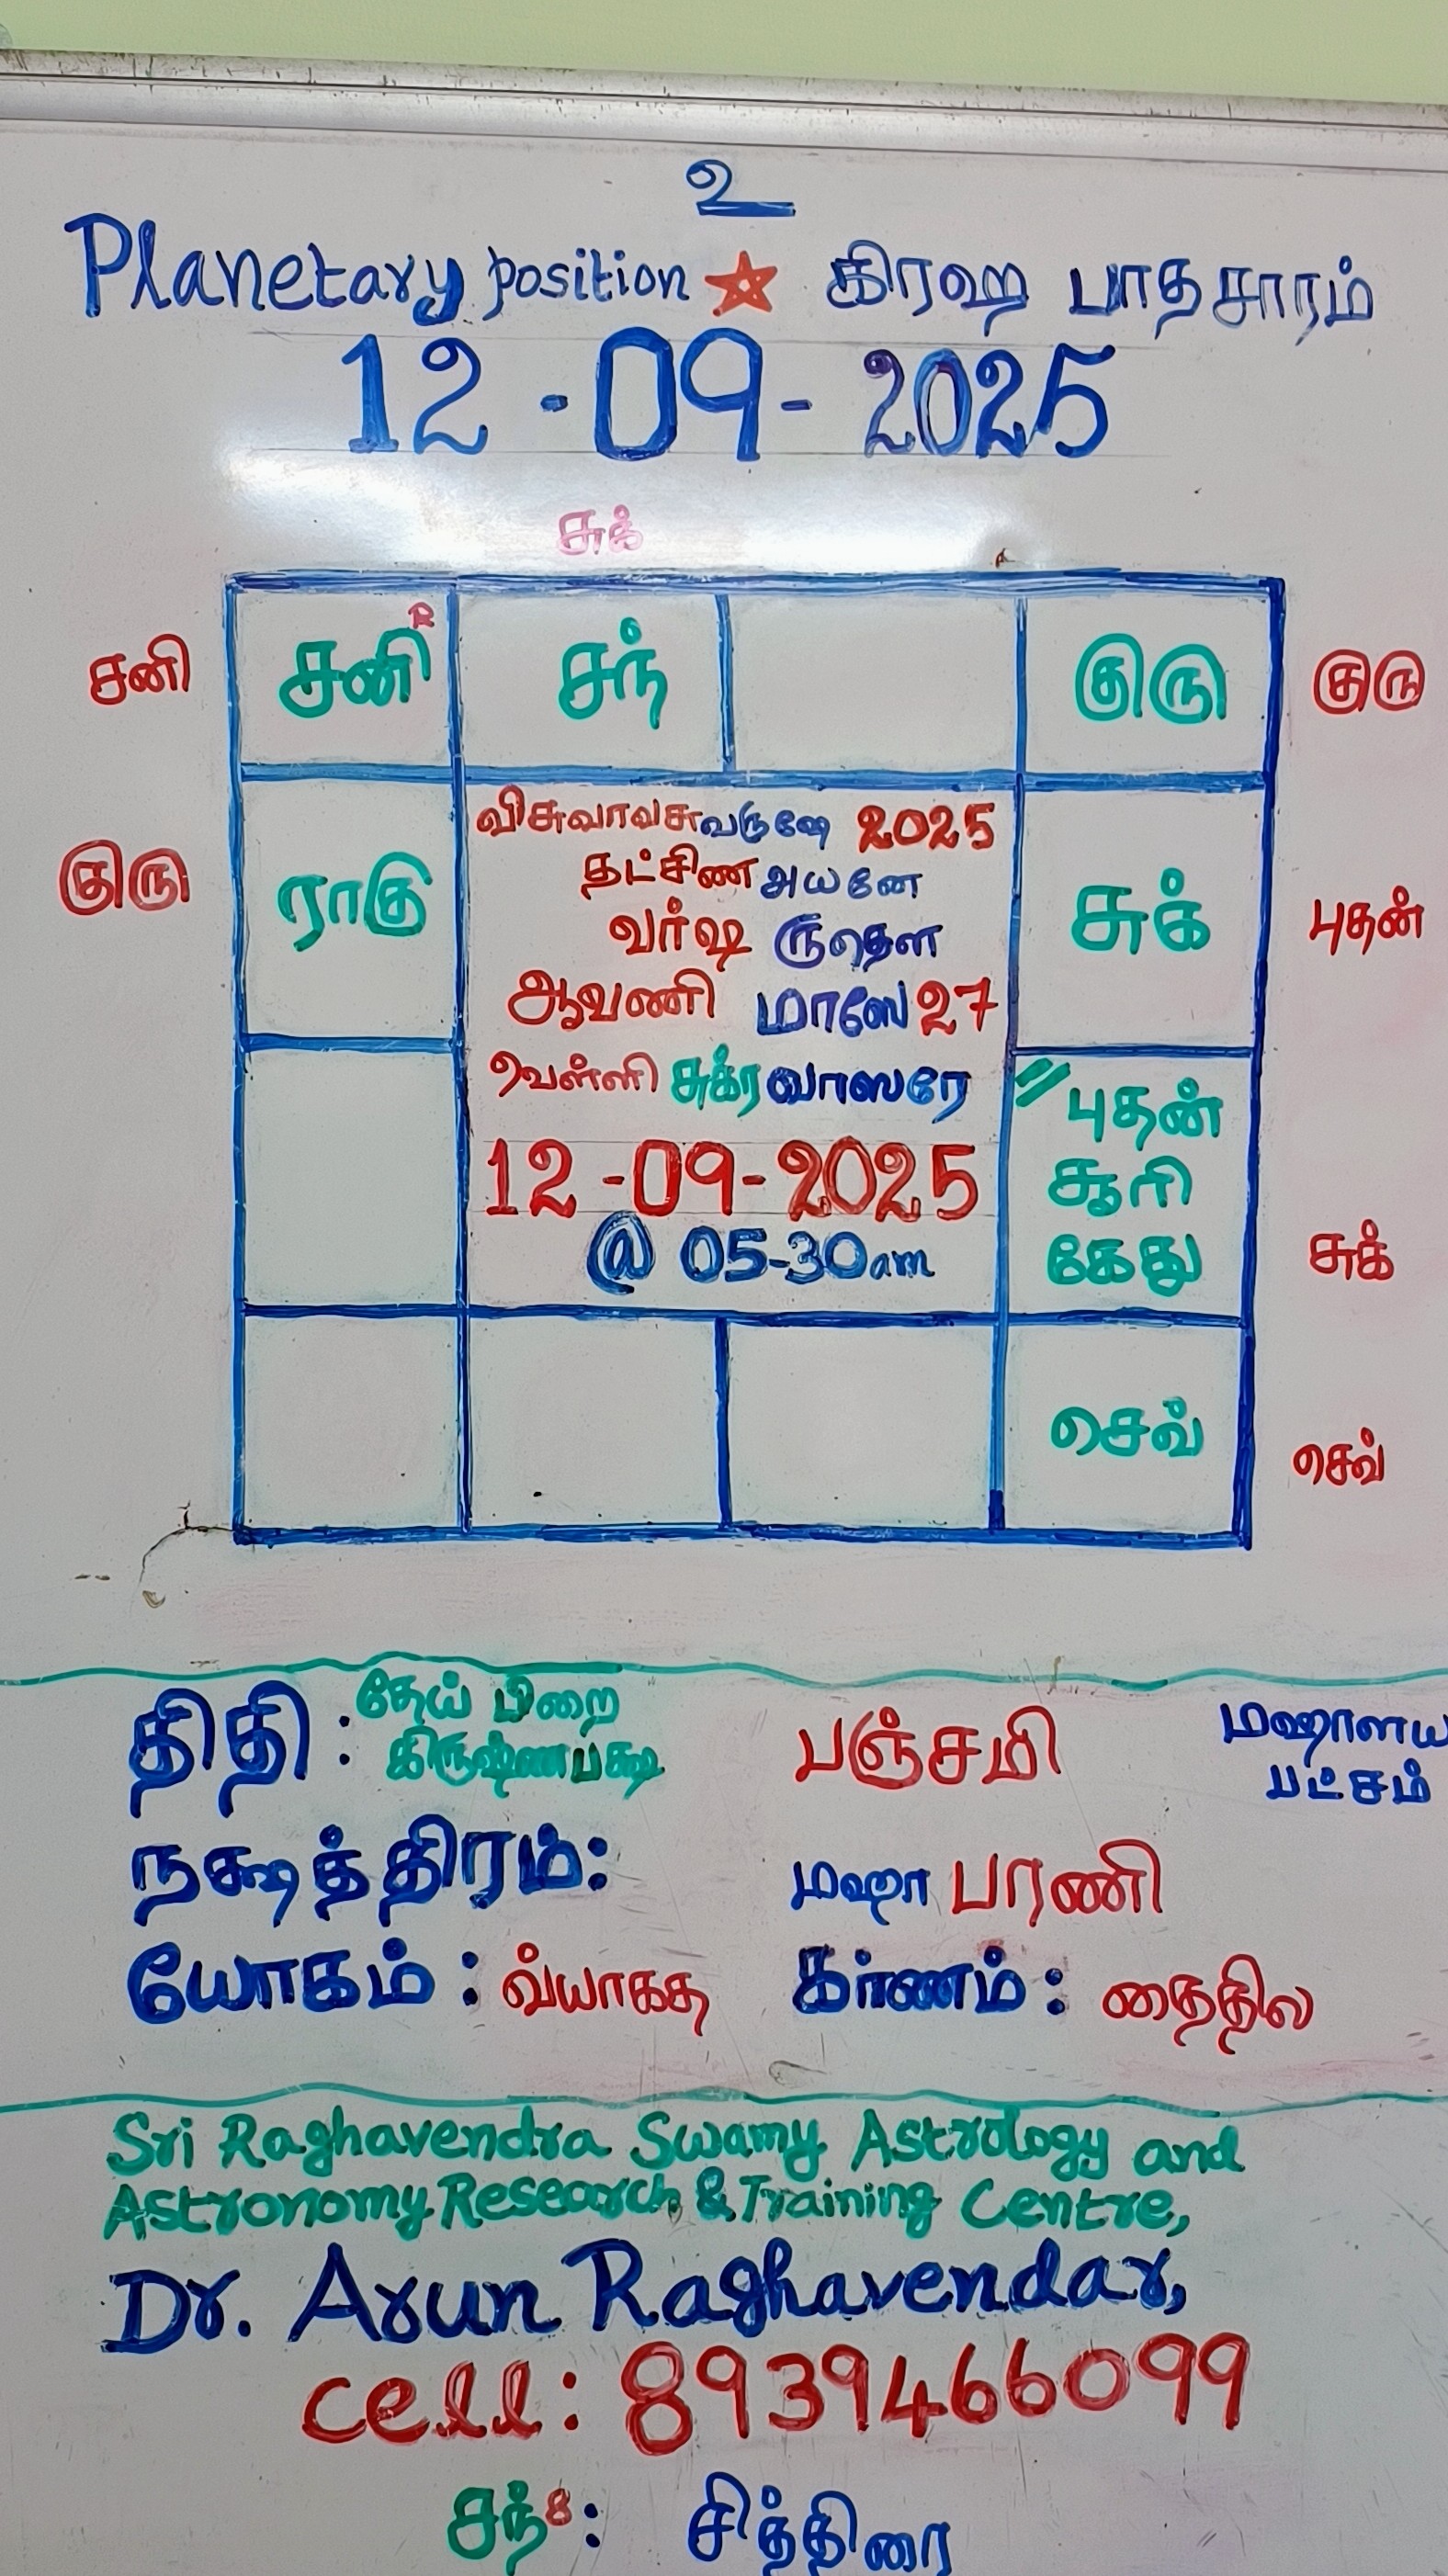 உ
Planetary position ☆ கிரஹ பாதசாரம்
12-09-2025
சுக்
சனி சனி R சந் குரு குரு
விசுவாவசுவருஷே 2025
தட்சிண அயனே
குரு ராகு வர்ஷ ருதௌ சுக் புதன்
ஆவணி மாஸே 27
வெள்ளி சுக்ர வாஸரே
புதன்
12-09-2025 சூரி
@ 05-30am கேது சுக்
செவ் செவ்
திதி: தேய் பிறை பஞ்சமி மஹாளய
கிருஷ்ணபக்ஷ பட்சம்
நக்ஷத்திரம்: மஹா பரணி
யோகம்: வ்யாகத கர்ணம்: தைதில
Sri Raghavendra Swamy Astrology and
Astronomy Research & Training Centre,
Dr. Arun Raghavendar,
cell: 8939466099
சந் 8: சித்திரை